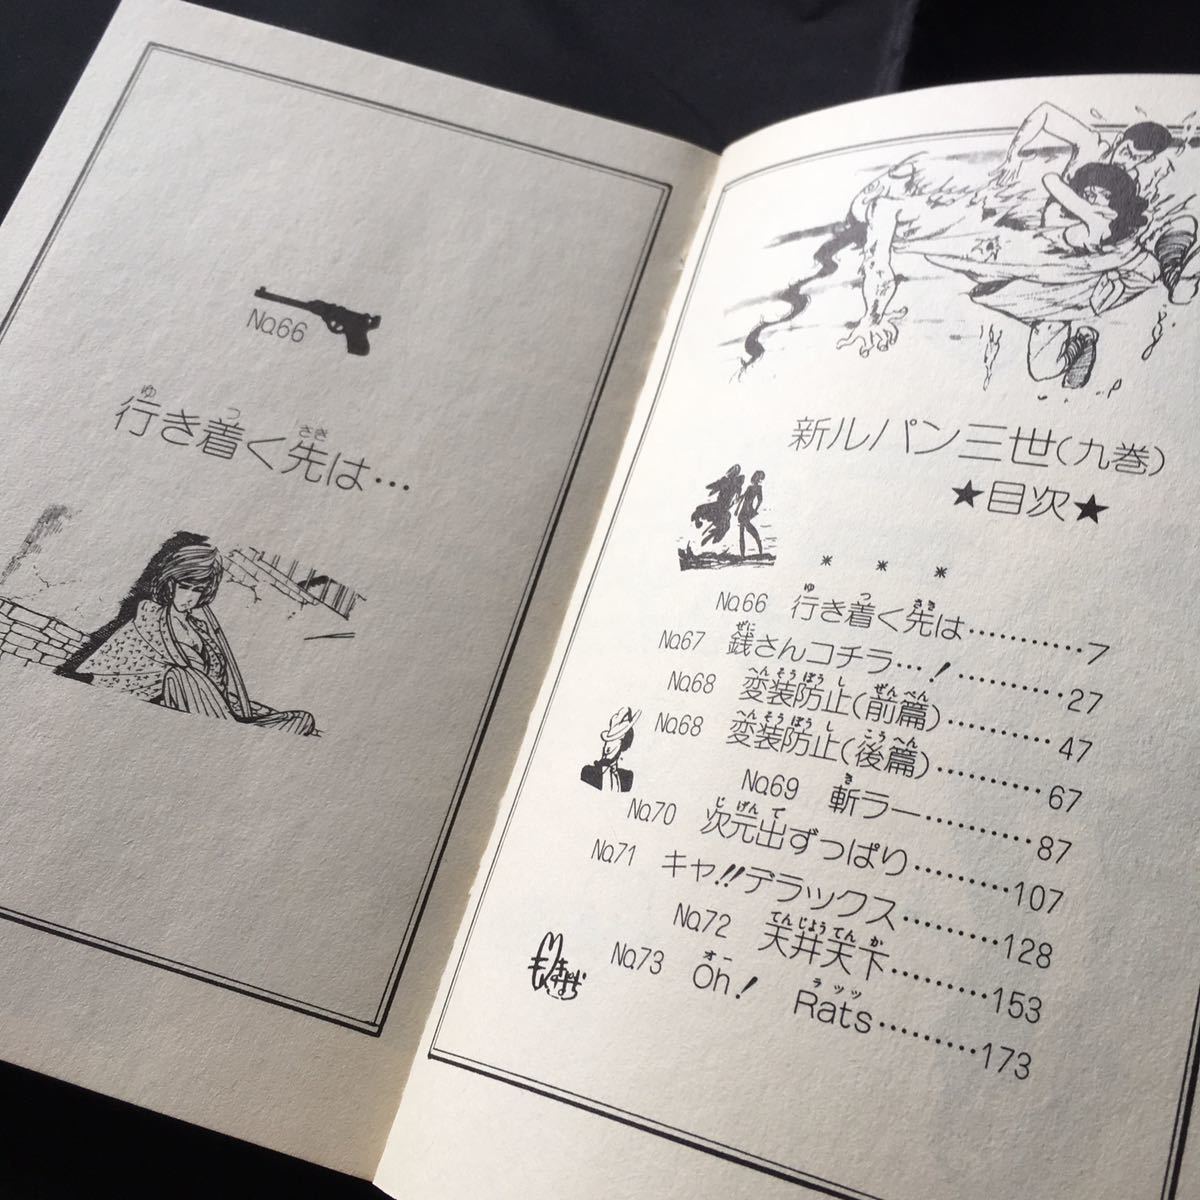 No.66
行き着く先は…
新ルパン三世(九巻)
★目次★
* * *
No.66 行き着く先は…………7
No.67 銭さんコチラ…!…………27
No.68 変装防止(前篇)…………47
No.68 変装防止(後篇)…………67
No.69 斬ラー…………87
No.70 次元出ずっぱり…………107
No.71 キャ!!デラックス…………128
No.72 天井天下…………153
No.73 Oh! Rats…………173